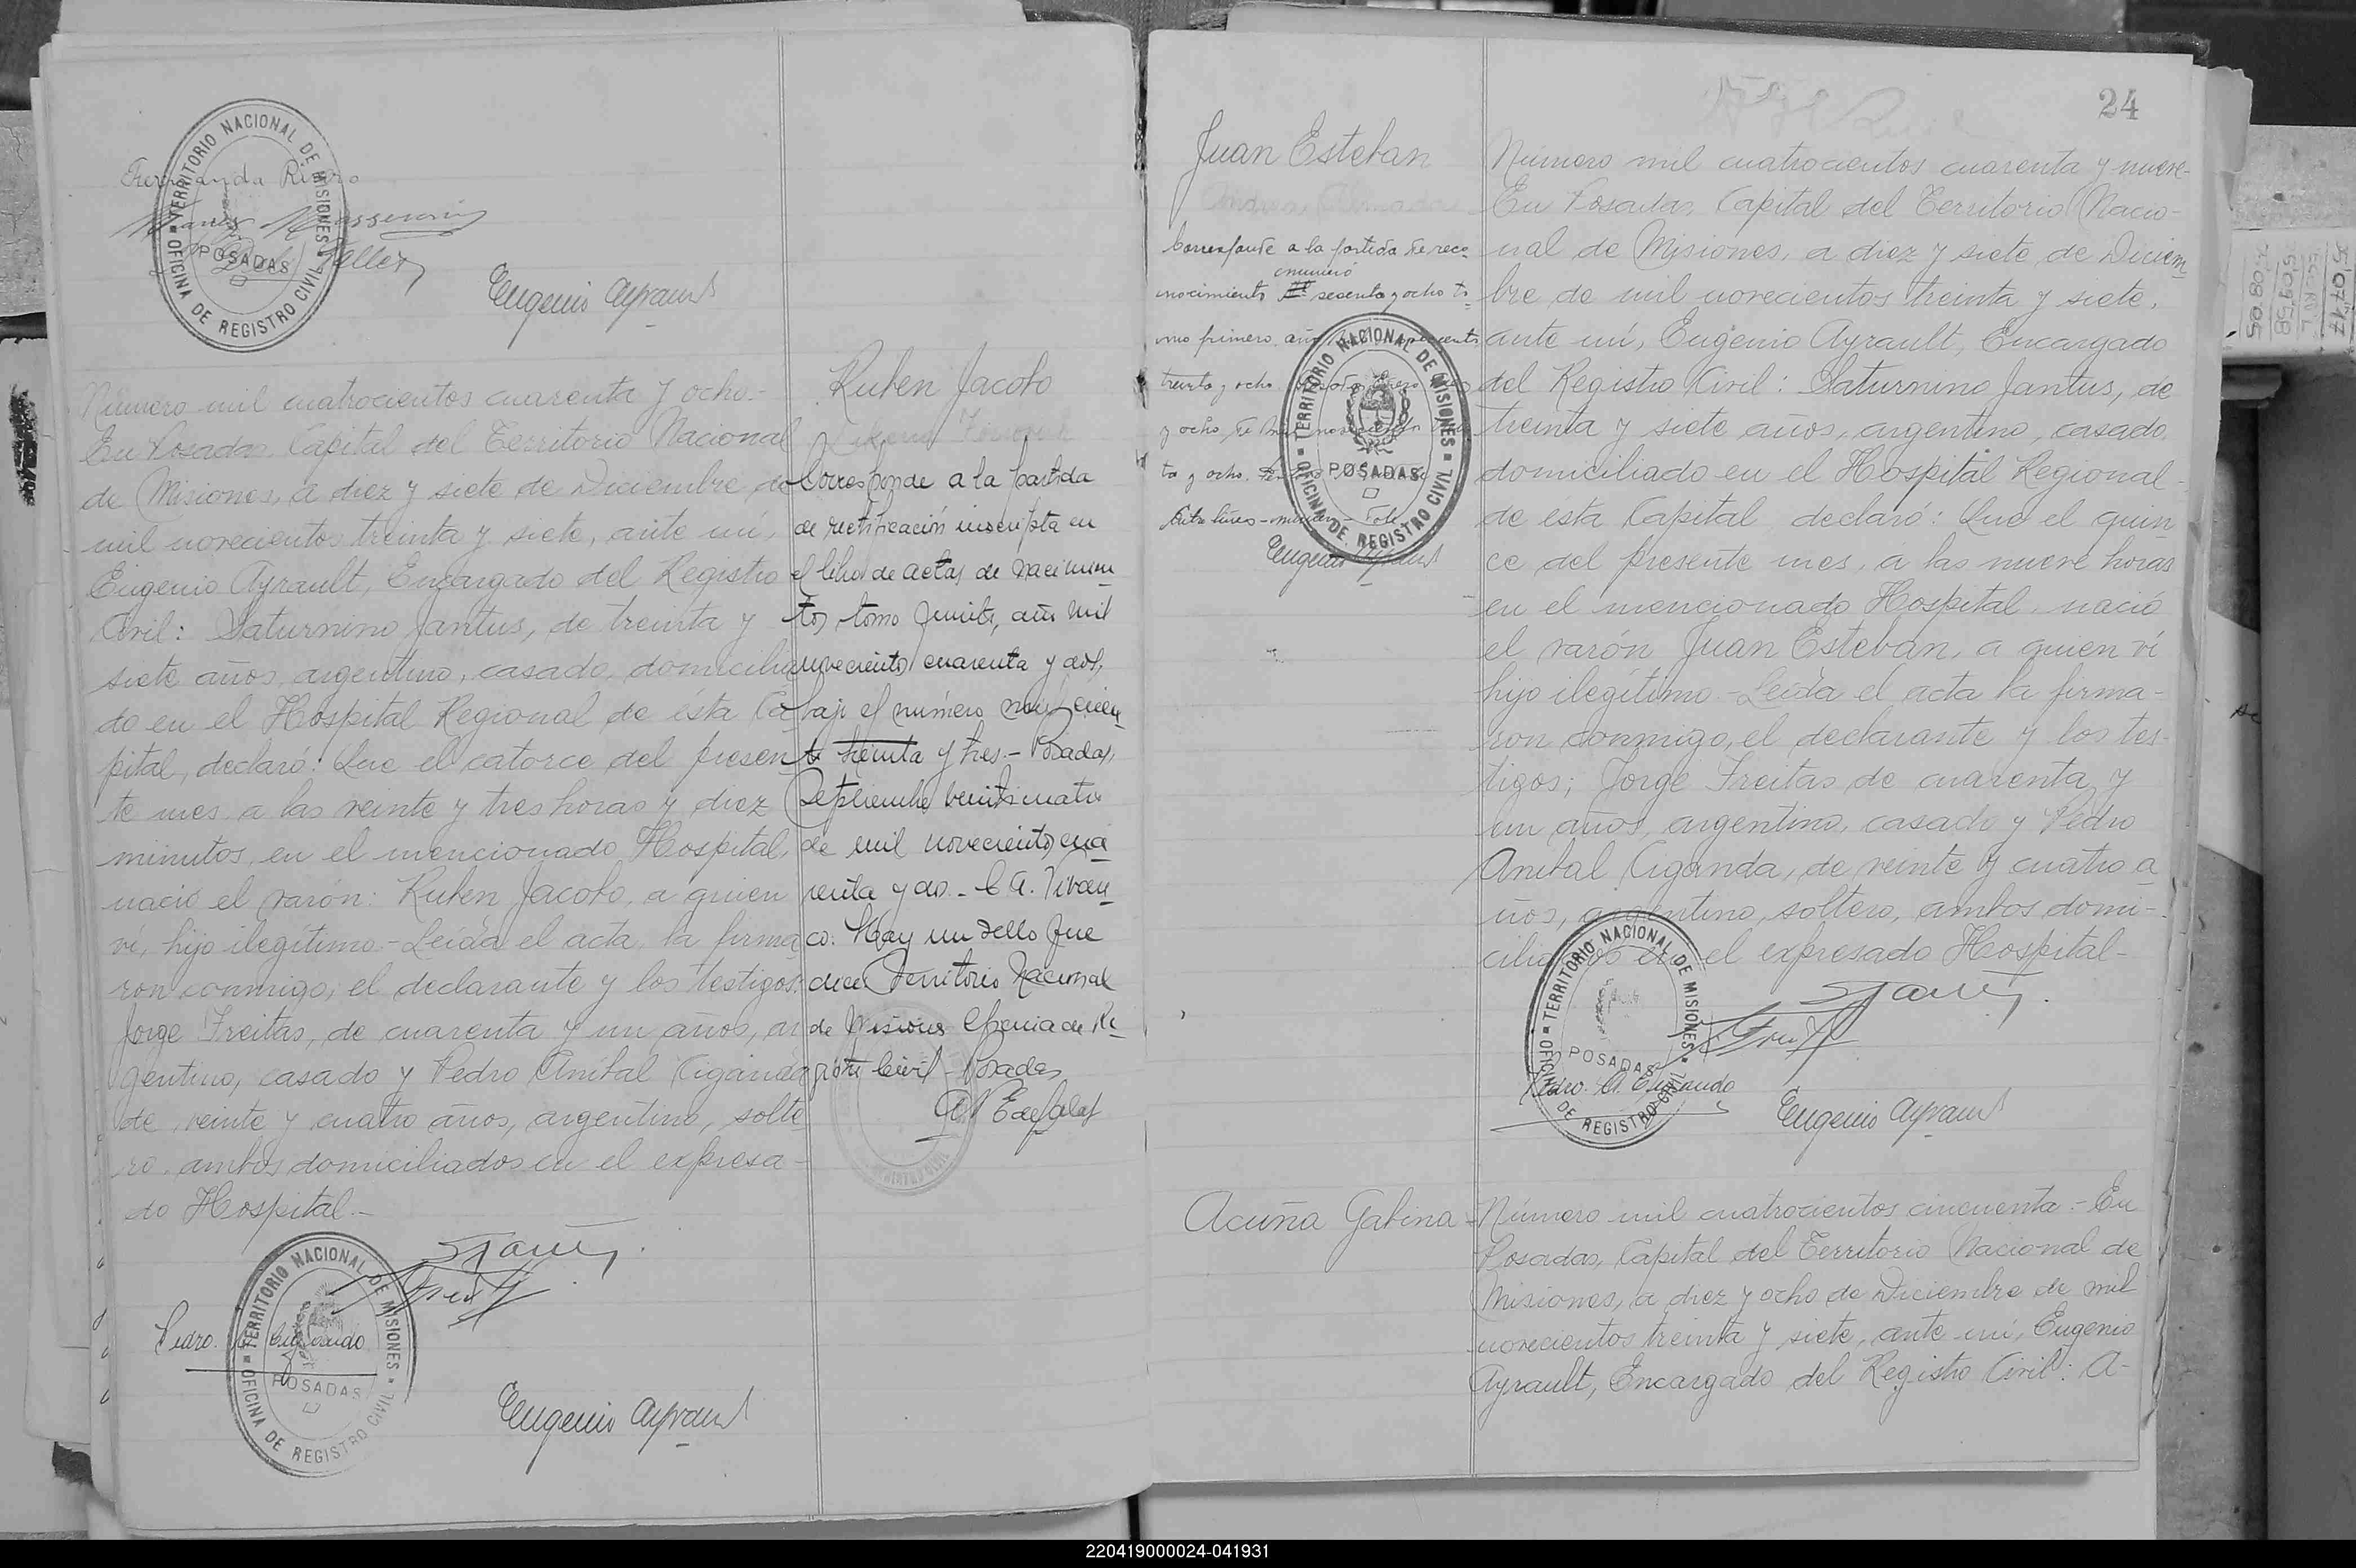 TERRITORIO NACIONAL DE MISIONES
OFICINA DE REGISTRO CIVIL
POSADAS
Eugenio Ayrault
Número mil cuatrocientos cuarenta y ocho.-
En Posadas, Capital del Territorio Nacional
de Misiones, a diez y siete de Diciembre de
mil novecientos treinta y siete, ante mí,
Eugenio Ayrault, Encargado del Registro
Civil: Saturnino Jantus, de treinta y
siete años, argentino, casado, domicilia
do en el Hospital Regional de ésta Ca
pital, declaró: Que el catorce del presen
te mes a las veinte y tres horas y diez
minutos, en el mencionado Hospital,
nació el varón: Ruben Jacobo, a quien
ví, hijo ilegítimo.- Leída el acta, la firma
ron conmigo, el declarante y los testigos:
Jorge Freitas, de cuarenta y un años, ar
gentino, casado y Pedro Anibal Ciganda
de veinte y cuatro años, argentino, solte
ro, ambos domiciliados en el expresa-
do Hospital.-
TERRITORIO NACIONAL DE MISIONES
OFICINA DE REGISTRO CIVIL
POSADAS
Eugenio Ayrault
Ruben Jacobo
Corresponde a la partida
de rectificación inscripta en
el libro de actas de nacimien
tos, tomo quinto, año mil
novecientos cuarenta y dos,
bajo el número mil cien
to treinta y tres.- Posadas,
Septiembre veinticuatro
de mil novecientos cua
renta y dos.- C. A. Vivan
co. Hay un sello que
dice Territorio Nacional
de Misiones Oficina de Re
gistro Civil - Posadas
24
Juan Esteban
Corresponde a la partida de reco
número
nocimiento sesenta y ocho to
mo primero, año
treinta y ocho.
y ocho, de mil novecientos
ta y ocho.
Eugenio Ayrault
TERRITORIO NACIONAL DE MISIONES
OFICINA DE REGISTRO CIVIL
POSADAS
Número mil cuatrocientos cuarenta y nueve-
En Posadas, Capital del Territorio Nacio-
nal de Misiones, a diez y siete de Diciem
bre de mil novecientos treinta y siete,
ante mí, Eugenio Ayrault, Encargado
del Registro Civil: Saturnino Jantus, de
treinta y siete años, argentino, casado,
domiciliado en el Hospital Regional
de ésta Capital declaró: Que el quin
ce del presente mes, a las nueve horas
en el mencionado Hospital, nació
el varón Juan Esteban, a quien ví
hijo ilegítimo.- Leída el acta la firma-
ron conmigo, el declarante y los tes-
tigos; Jorge Freitas de cuarenta y
un años, argentino, casado y Pedro
Anibal Ciganda, de veinte y cuatro a
ños, argentino, soltero, ambos domi-
ciliados en el expresado Hospital-
TERRITORIO NACIONAL DE MISIONES
OFICINA DE REGISTRO CIVIL
POSADAS
Eugenio Ayrault
Acuña Gabina
Número mil cuatrocientos cincuenta.- En
Posadas, Capital del Territorio Nacional de
Misiones, a diez y ocho de Diciembre de mil
novecientos treinta y siete, ante mí, Eugenio
Ayrault, Encargado del Registro Civil: A-
220419000024-041931